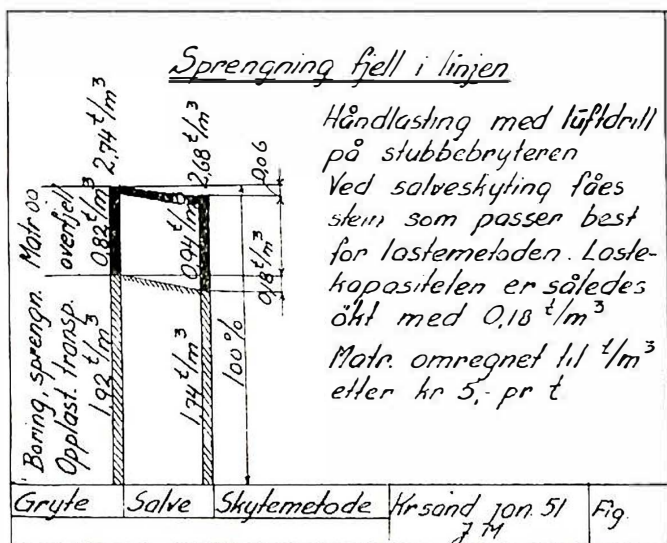 Sprengning fjell i linjen
Håndlasting med luftdrill
på stubbebryteren
Ved salveskyting fåes
stein som passer best
for lastemetoden. Laste-
kapasitelen er således
økt med 0,18 t/m³
Matr. omregnet til t/m³
etter kr 5,- pr t
2,74 t/m³
2,68 t/m³
0,06
Matr og
overfjell
0,82 t/m³
0,94 t/m³
0,18 t/m³
Boring, sprengn.
Opplast. transp.
1,92 t/m³
1,74 t/m³
100 %
Gryte
Salve
Skytemetode
Krsand jan. 51
J M
Fig.